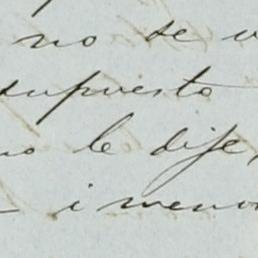 no se
supuesto
no le dije,
i menor